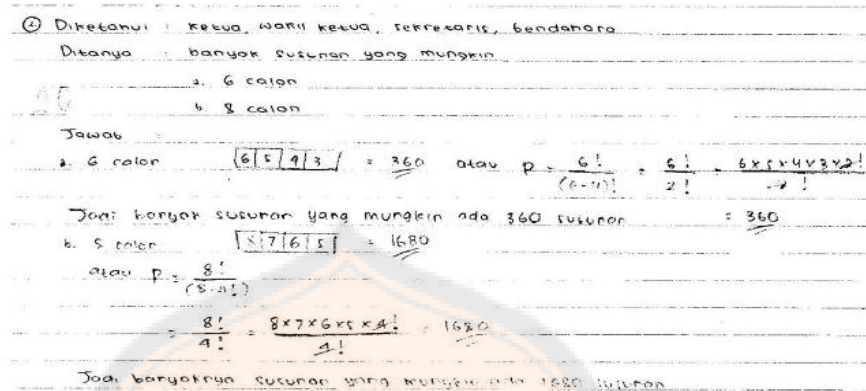 ② Diketahui : ketua, wakil ketua, sekretaris, bendahara
Ditanya : banyak susunan yang mungkin
a. 6 calon
b. 8 calon
Jawab :
a. 6 calon |6|5|4|3| = 360 atau P = 6!/(6-4)! = 6!/2! = 6x5x4x3x2!/2!
Jadi banyak susunan yang mungkin ada 360 susunan = 360
b. 8 calon |8|7|6|5| = 1680
atau P = 8!/(8-4!)
= 8!/4! = 8x7x6x5x4!/4! = 1680
Jadi banyaknya susunan yang mungkin ada 1680 susunan